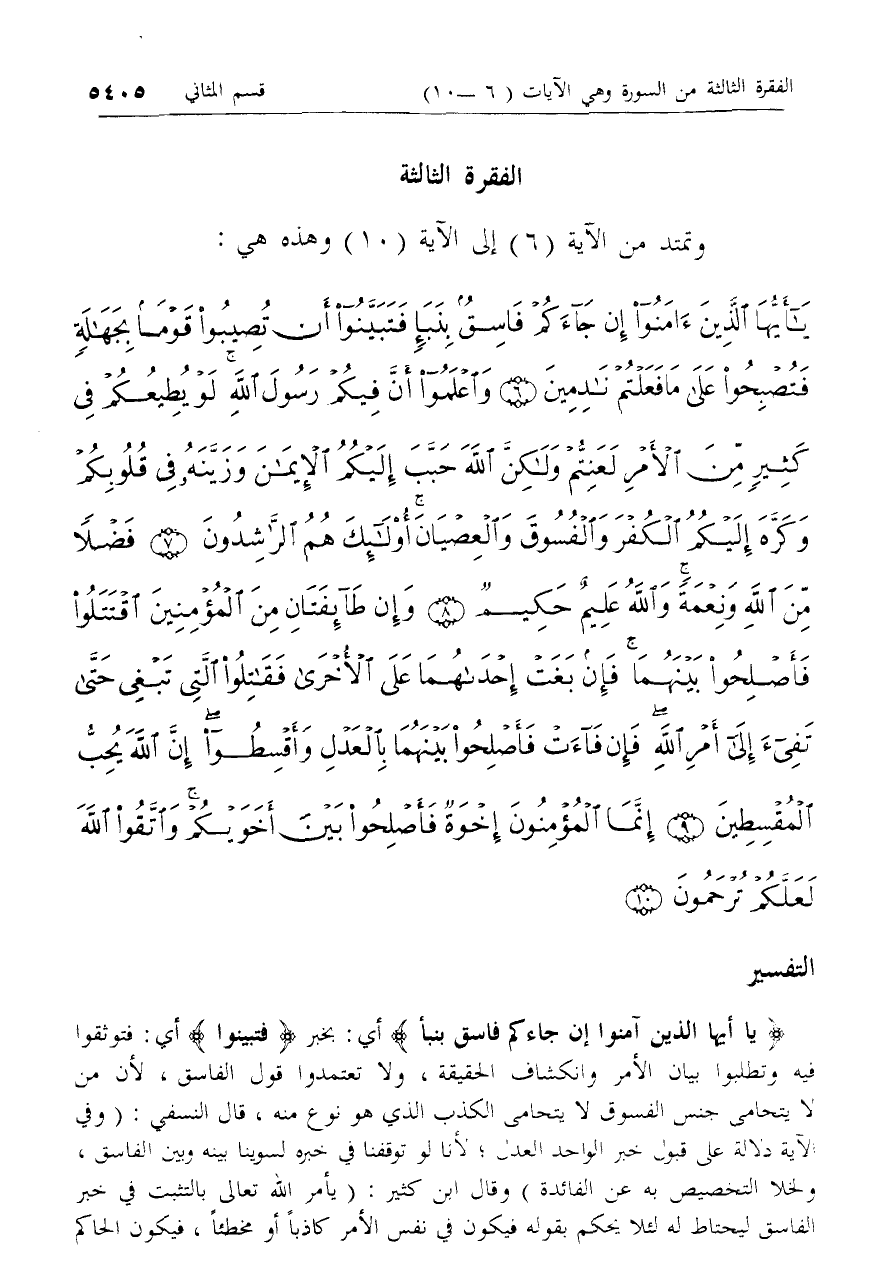 الفقرة الثالثة من السورة وهي الآيات ( ٦ — ١٠ ) قسم المثاني ٥٤٠٥
الفقرة الثالثة
وتمتد من الآية (٦) إلى الآية (١٠) وهذه هي :
يَـٰٓأَيُّهَا ٱلَّذِينَ ءَامَنُوٓا۟ إِن جَآءَكُمْ فَاسِقٌۢ بِنَبَإٍ فَتَبَيَّنُوٓا۟ أَن تُصِيبُوا۟ قَوْمًۢا بِجَهَـٰلَةٍ
فَتُصْبِحُوا۟ عَلَىٰ مَا فَعَلْتُمْ نَـٰدِمِينَ ۝٦ وَٱعْلَمُوٓا۟ أَنَّ فِيكُمْ رَسُولَ ٱللَّهِ ۚ لَوْ يُطِيعُكُمْ فِى
كَثِيرٍ مِّنَ ٱلْأَمْرِ لَعَنِتُّمْ وَلَـٰكِنَّ ٱللَّهَ حَبَّبَ إِلَيْكُمُ ٱلْإِيمَـٰنَ وَزَيَّنَهُۥ فِى قُلُوبِكُمْ
وَكَرَّهَ إِلَيْكُمُ ٱلْكُفْرَ وَٱلْفُسُوقَ وَٱلْعِصْيَانَ ۚ أُو۟لَـٰٓئِكَ هُمُ ٱلرَّٰشِدُونَ ۝٧ فَضْلًا
مِّنَ ٱللَّهِ وَنِعْمَةً ۚ وَٱللَّهُ عَلِيمٌ حَكِيمٌ ۝٨ وَإِن طَآئِفَتَانِ مِنَ ٱلْمُؤْمِنِينَ ٱقْتَتَلُوا۟
فَأَصْلِحُوا۟ بَيْنَهُمَا ۖ فَإِنۢ بَغَتْ إِحْدَىٰهُمَا عَلَى ٱلْأُخْرَىٰ فَقَـٰتِلُوا۟ ٱلَّتِى تَبْغِى حَتَّىٰ
تَفِىٓءَ إِلَىٰٓ أَمْرِ ٱللَّهِ ۚ فَإِن فَآءَتْ فَأَصْلِحُوا۟ بَيْنَهُمَا بِٱلْعَدْلِ وَأَقْسِطُوٓا۟ ۖ إِنَّ ٱللَّهَ يُحِبُّ
ٱلْمُقْسِطِينَ ۝٩ إِنَّمَا ٱلْمُؤْمِنُونَ إِخْوَةٌ فَأَصْلِحُوا۟ بَيْنَ أَخَوَيْكُمْ ۚ وَٱتَّقُوا۟ ٱللَّهَ
لَعَلَّكُمْ تُرْحَمُونَ ۝١٠
التفسير
﴿ يا أيها الذين آمنوا إن جاءكم فاسق بنبأ ﴾ أي : بخبر ﴿ فتبينوا ﴾ أي : فتوثقوا
فيه وتطلبوا بيان الأمر وانكشاف الحقيقة ، ولا تعتمدوا قول الفاسق ، لأن من
لا يتحامى جنس الفسوق لا يتحامى الكذب الذي هو نوع منه ، قال النسفي : ( وفي
الآية دلالة على قبول خبر الواحد العدل ؛ لأنا لو توقفنا في خبره لسوينا بينه وبين الفاسق ،
ولخلا التخصيص به عن الفائدة ) وقال ابن كثير : ( يأمر الله تعالى بالتثبت في خبر
الفاسق ليحتاط له لئلا يحكم بقوله فيكون في نفس الأمر كاذباً أو مخطئاً ، فيكون الحاكم